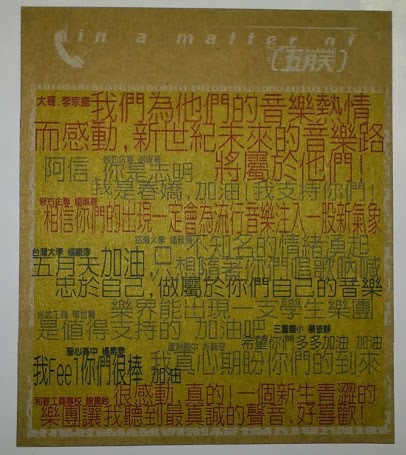 in a matter of
五月天
大哥 李宗盛 我們為他們的音樂熱情
而感動,新世紀未來的音樂路
將屬於他們!
阿信 你是志明
我是春嬌,加油!我支持你們!
相信你們的出現一定會為流行音樂注入一股新氣象
不知名的情緒湧起
台灣大學
五月天加油,只想隨著你們唱歌吶喊
忠於自己,做屬於你們自己的音樂
樂界能出現一支學生樂團
是值得支持的 加油吧
三重國小 蔡依錚
希望你們多多加油 加油
聖心高中
我Feel你們很棒 加油
我真心期盼你們的到來
很感動,真的!一個新生青澀的
樂團讓我聽到最真誠的聲音.好喜歡!